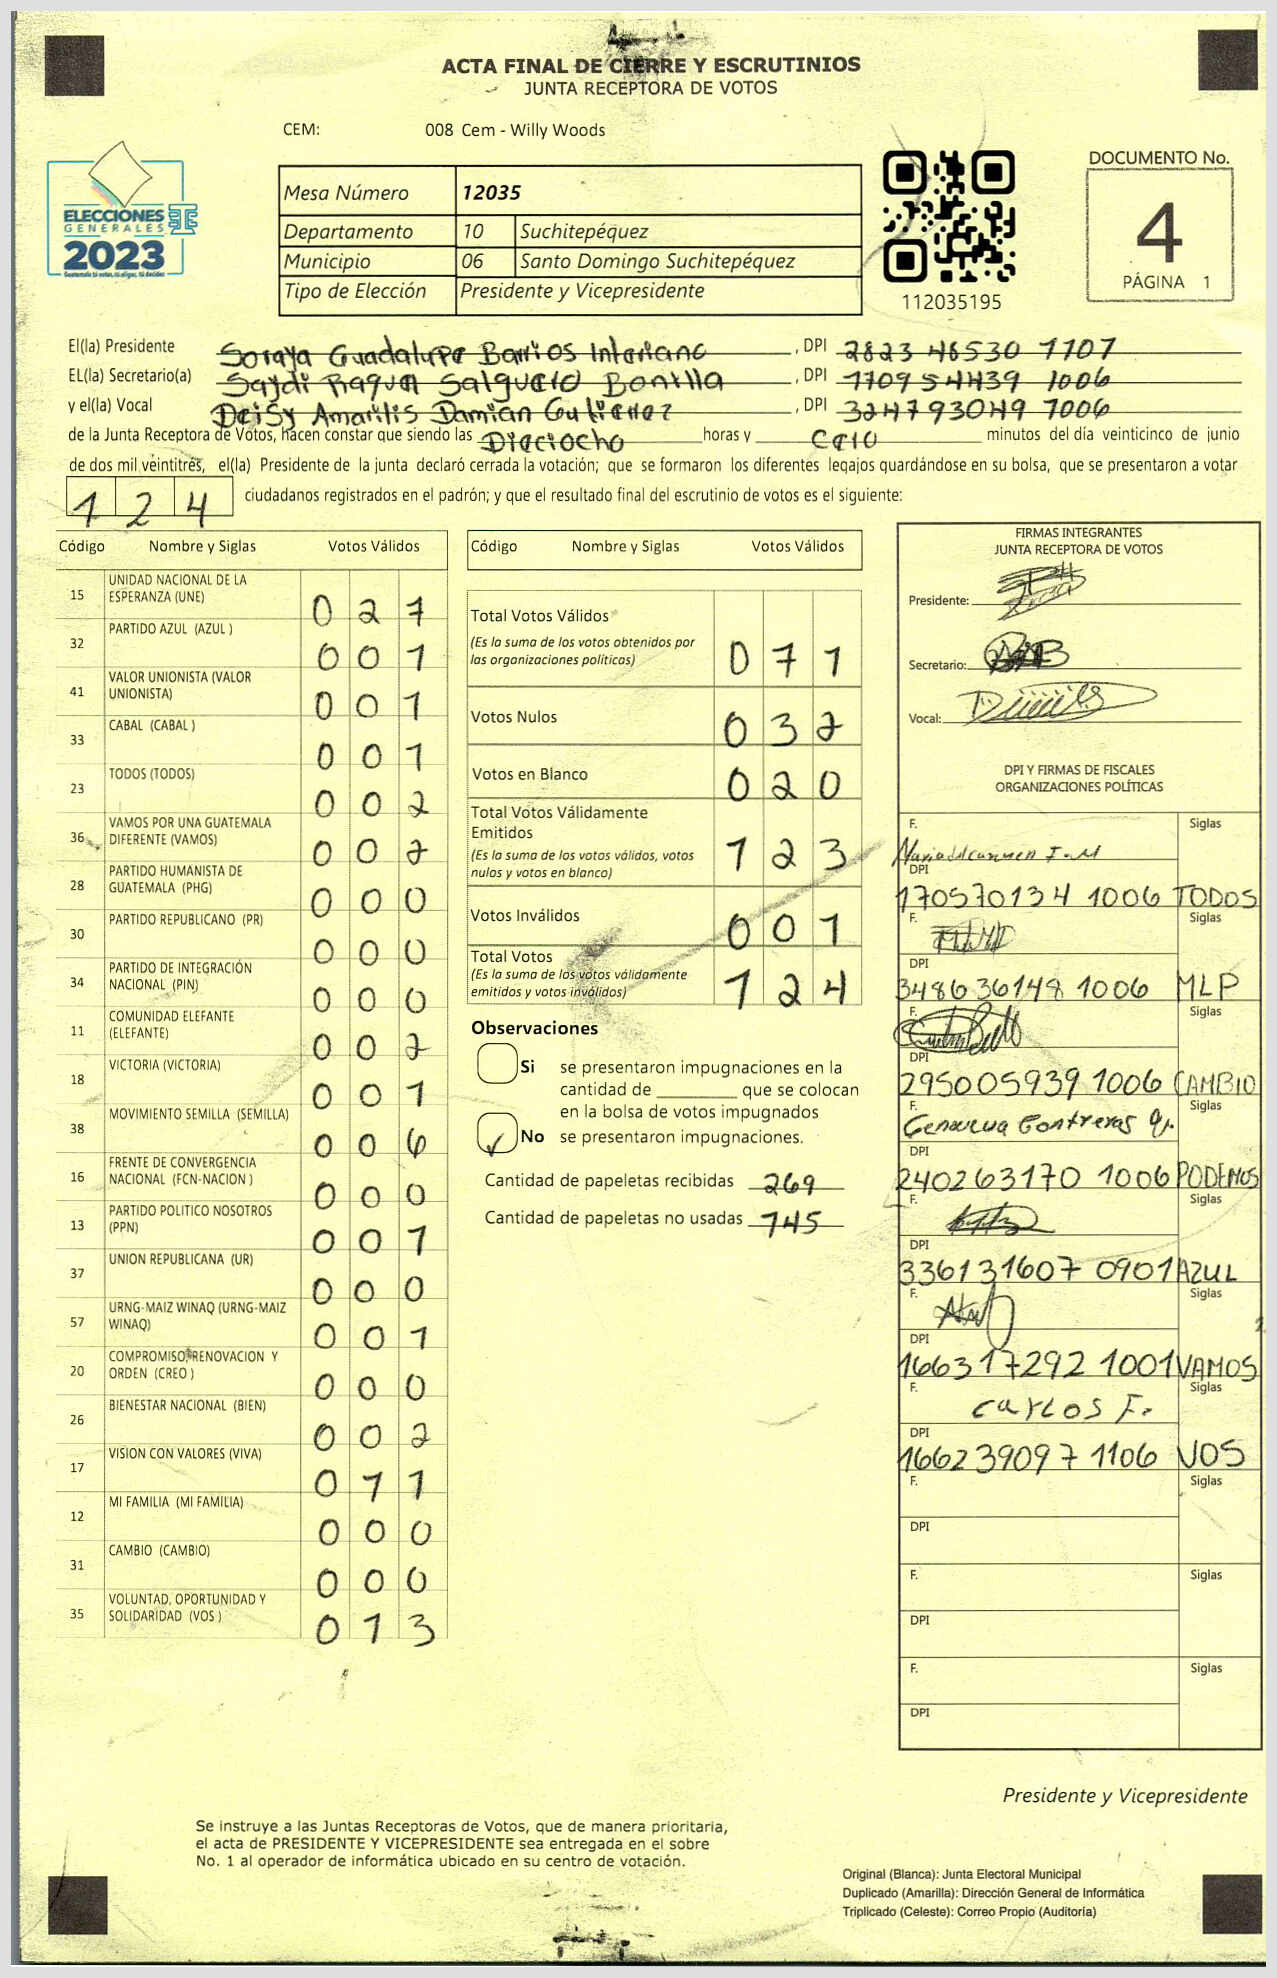 ACTA FINAL DE CIERRE Y ESCRUTINIOS
JUNTA RECEPTORA DE VOTOS
CEM: 008 Cem - Willy Woods
ELECCIONES
GENERALES
2023
Mesa Número 12035
Departamento 10 Suchitepéquez
Municipio 06 Santo Domingo Suchitepéquez
Tipo de Elección Presidente y Vicepresidente
112035195
DOCUMENTO No.
4
PÁGINA 1
El(la) Presidente Soraya Guadalupe Barrios Interiano, DPI 2823 46530 1107
EL(la) Secretario(a) Saydi Raquel Salguero Bonilla, DPI 1709 54439 1006
y el(la) Vocal Deisy Amarilis Damian Gutierrez, DPI 324793049 1006
de la Junta Receptora de Votos, hacen constar que siendo las Dieciocho horas y cero minutos del día veinticinco de junio
de dos mil veintitrés, el(la) Presidente de la junta declaró cerrada la votación; que se formaron los diferentes legajos guardándose en su bolsa, que se presentaron a votar
124 ciudadanos registrados en el padrón; y que el resultado final del escrutinio de votos es el siguiente:
Código Nombre y Siglas Votos Válidos
15 UNIDAD NACIONAL DE LA ESPERANZA (UNE) 027
32 PARTIDO AZUL (AZUL ) 001
41 VALOR UNIONISTA (VALOR UNIONISTA) 001
33 CABAL (CABAL ) 001
23 TODOS (TODOS) 002
36 VAMOS POR UNA GUATEMALA DIFERENTE (VAMOS) 002
28 PARTIDO HUMANISTA DE GUATEMALA (PHG) 000
30 PARTIDO REPUBLICANO (PR) 000
34 PARTIDO DE INTEGRACIÓN NACIONAL (PIN) 000
11 COMUNIDAD ELEFANTE (ELEFANTE) 002
18 VICTORIA (VICTORIA) 001
38 MOVIMIENTO SEMILLA (SEMILLA) 006
16 FRENTE DE CONVERGENCIA NACIONAL (FCN-NACION ) 000
13 PARTIDO POLITICO NOSOTROS (PPN) 001
37 UNION REPUBLICANA (UR) 000
57 URNG-MAIZ WINAQ (URNG-MAIZ WINAQ) 001
20 COMPROMISO, RENOVACION Y ORDEN (CREO ) 000
26 BIENESTAR NACIONAL (BIEN) 002
17 VISION CON VALORES (VIVA) 011
12 MI FAMILIA (MI FAMILIA) 000
31 CAMBIO (CAMBIO) 000
35 VOLUNTAD, OPORTUNIDAD Y SOLIDARIDAD (VOS ) 013
Código Nombre y Siglas Votos Válidos
Total Votos Válidos 071
(Es la suma de los votos obtenidos por
las organizaciones políticas)
Votos Nulos 032
Votos en Blanco 020
Total Votos Válidamente
Emitidos 123
(Es la suma de los votos válidos, votos
nulos y votos en blanco)
Votos Inválidos 001
Total Votos 124
(Es la suma de los votos válidamente
emitidos y votos inválidos)
Observaciones
Si se presentaron impugnaciones en la
cantidad de ________ que se colocan
en la bolsa de votos impugnados
✓ No se presentaron impugnaciones.
Cantidad de papeletas recibidas 269
Cantidad de papeletas no usadas 145
FIRMAS INTEGRANTES
JUNTA RECEPTORA DE VOTOS
Presidente:
Secretario:
Vocal:
DPI Y FIRMAS DE FISCALES
ORGANIZACIONES POLÍTICAS
F. Siglas
DPI
170570134 1006 TODOS
F. Siglas
DPI
348636148 1006 MLP
F. Siglas
DPI
295005939 1006 CAMBIO
F. Contreras Siglas
DPI
240263170 1006 PODEMOS
F. Siglas
DPI
336131607 0901 AZUL
F. Siglas
DPI
166317292 1001 VAMOS
F. Carlos F. Siglas
DPI
166239097 1106 VOS
F. Siglas
DPI
F. Siglas
DPI
F. Siglas
DPI
Presidente y Vicepresidente
Se instruye a las Juntas Receptoras de Votos, que de manera prioritaria,
el acta de PRESIDENTE Y VICEPRESIDENTE sea entregada en el sobre
No. 1 al operador de informática ubicado en su centro de votación.
Original (Blanca): Junta Electoral Municipal
Duplicado (Amarilla): Dirección General de Informática
Triplicado (Celeste): Correo Propio (Auditoría)